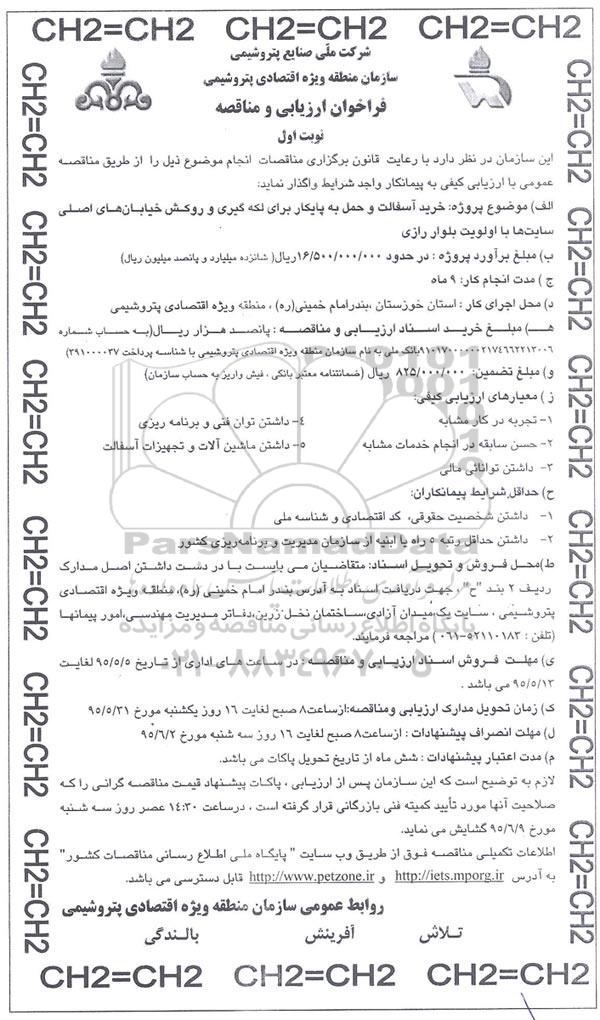 CH2=CH2 CH2=CH2 CH2=CH2
شرکت ملّی صنایع پتروشیمی
سازمان منطقه ویژه اقتصادی پتروشیمی
فراخوان ارزیابی و مناقصه
نوبت اول
این سازمان در نظر دارد با رعایت قانون برگزاری مناقصات انجام موضوع ذیل را از طریق مناقصه
عمومی با ارزیابی کیفی به پیمانکار واجد شرایط واگذار نماید:
الف) موضوع پروژه: خرید آسفالت و حمل به پایکار برای لکه گیری و روکش خیابان‌های اصلی
سایت‌ها با اولویت بلوار رازی
ب) مبلغ برآورد پروژه : در حدود ۱۶/۵۰۰/۰۰۰/۰۰۰ریال( شانزده میلیارد و پانصد میلیون ریال)
ج ) مدت انجام کار: ۹ ماه
د) محل اجرای کار : استان خوزستان ،بندرامام خمینی(ره) ، منطقه ویژه اقتصادی پتروشیمی
هـ) مبلغ خرید اسناد ارزیابی و مناقصه : پانصد هزار ریال(به حساب شماره
بانک ملی به نام سازمان منطقه ویژه اقتصادی پتروشیمی با شناسه پرداخت ۳۹۱۰۰۰۰۳۷)
و ) مبلغ تضمین: ۸۲۵/۰۰۰/۰۰۰ ریال (ضمانتنامه معتبر بانکی ، فیش واریز به حساب سازمان)
ز ) معیارهای ارزیابی کیفی:
۱- تجربه در کار مشابه ۴- داشتن توان فنی و برنامه ریزی
۲- حسن سابقه در انجام خدمات مشابه ۵- داشتن ماشین آلات و تجهیزات آسفالت
۳- داشتن توانائی مالی
ح) حداقل شرایط پیمانکاران:
۱- داشتن شخصیت حقوقی، کد اقتصادی و شناسه ملی
۲- داشتن حداقل رتبه ۵ راه یا ابنیه از سازمان مدیریت و برنامه‌ریزی کشور
ط)محل فروش و تحویل اسناد: متقاضیان می بایست با در دست داشتن اصل مدارک
ردیف ۲ بند "ح" ، جهت دریافت اسناد به آدرس بندر امام خمینی (ره)، منطقه ویژه اقتصادی
پتروشیمی ، سایت یک،میدان آزادی،ساختمان نخل زرین،دفاتر مدیریت مهندسی،امور پیمانها
(تلفن : ۵۲۱۱۰۱۸۳-۰۶۱ ) مراجعه فرمایند.
ی) مهلت فروش اسناد ارزیابی و مناقصه : در ساعت های اداری از تاریخ ۹۵/۵/۵ لغایت
۹۵/۵/۱۳ می باشد .
ک) زمان تحویل مدارک ارزیابی ومناقصه:ازساعت۸ صبح لغایت ۱۶ روز یکشنبه مورخ ۹۵/۵/۳۱
ل) مهلت انصراف پیشنهادات : ازساعت۸ صبح لغایت ۱۶ روز سه شنبه مورخ ۹۵/۶/۲
م) مدت اعتبار پیشنهادات : شش ماه از تاریخ تحویل پاکات می باشد.
لازم به توضیح است که این سازمان پس از ارزیابی ، پاکات پیشنهاد قیمت مناقصه گرانی را که
صلاحیت آنها مورد تأیید کمیته فنی بازرگانی قرار گرفته است ، درساعت ۱۴:۳۰ عصر روز سه شنبه
مورخ ۹۵/۶/۹ گشایش می نماید.
اطلاعات تکمیلی مناقصه فوق از طریق وب سایت " پایگاه ملی اطلاع رسانی مناقصات کشور"
به آدرس http://iets.mporg.ir و http://www.petzone.ir قابل دسترسی می باشد.
روابط عمومی سازمان منطقه ویژه اقتصادی پتروشیمی
تلاش آفرینش بالندگی
CH2=CH2 CH2=CH2 CH2=CH2
CH2=CH2
CH2=CH2
CH2=CH2
CH2=CH2
CH2=CH2
CH2=CH2
CH2=CH2
CH2=CH2
CH2=CH2
CH2=CH2
CH2=CH2
CH2=CH2
ParsNamadData
پایگاه اطلاع رسانی مناقصه و مزایده
۰۲۱-۸۸۳۴۹۶۷۰-۵